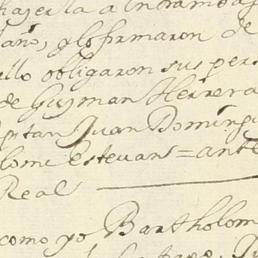 hazerla a
año, y lo firmaron de
ello obligaron sus pers
de Guzman Herrera
pitan Juan Domingu
lome Estevans = ante
Real
como yo Bartholom